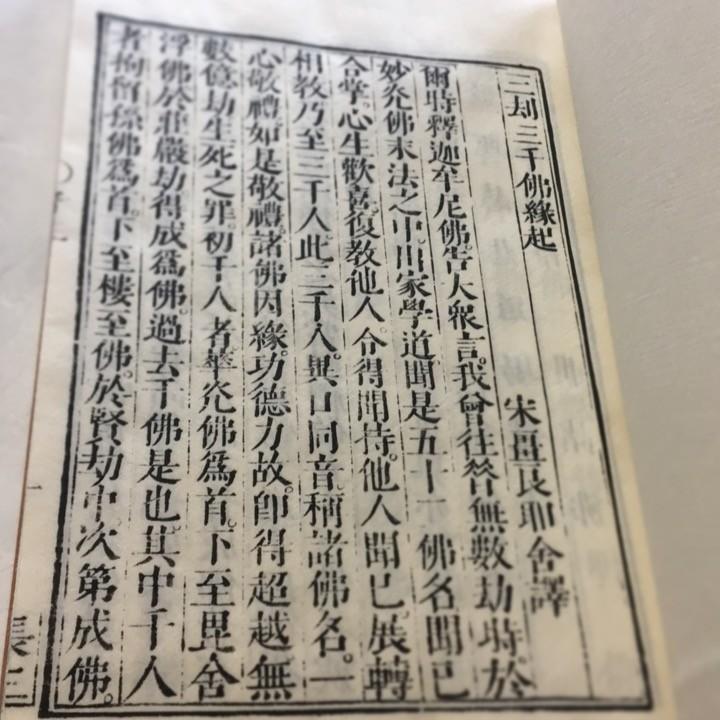 三刧三千佛緣起
宋畺良耶舍譯
爾時釋迦牟尼佛告大衆言。我曾往昔無數劫時於
妙光佛末法之中。出家學道聞是五十三佛名聞已
合掌。心生歡喜。復教他人。令得聞持。他人聞已。展轉
相教乃至三千人此三千人。異口同音。稱諸佛名。一
心敬禮。如是敬禮。諸佛因緣。功德力故。即得超越無
數億劫生死之罪。初千人者。華光佛爲首。下至毘舍
浮佛於莊嚴劫得成爲佛。過去千佛是也其中千人
者拘留孫佛爲首。下至樓至佛。於賢劫中。次第成佛。